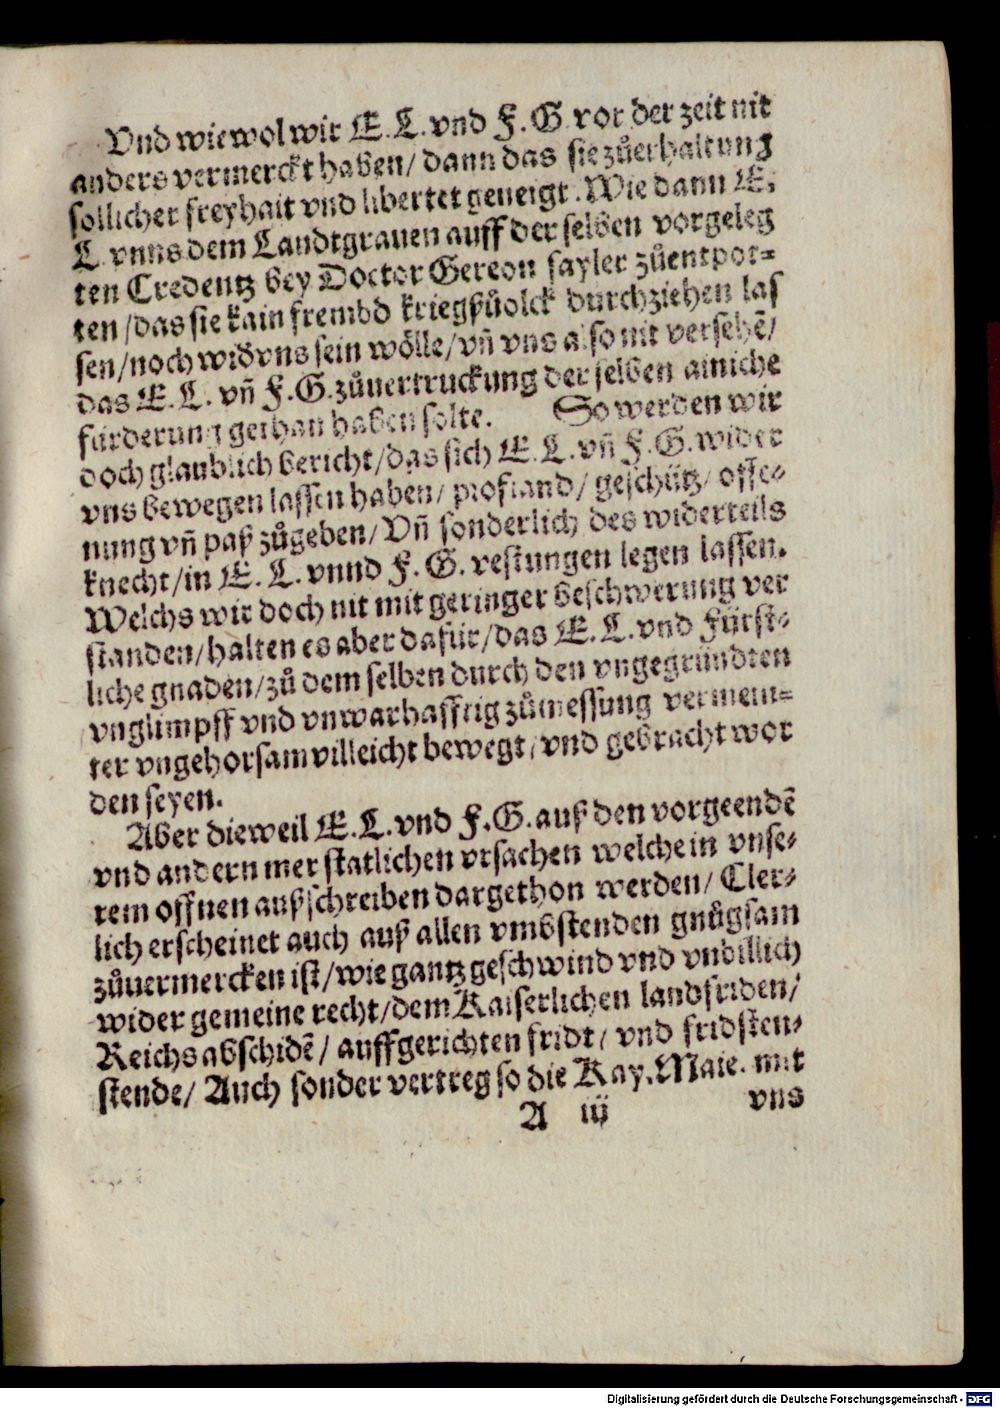 Vnd wiewol wir E. L. vnd F. G vor der zeit nit
anders vermerckt haben/ dann das sie zůerhaltung
sollicher freyhait vnd libertet geneigt. Wie dann E.
L. vnns dem Landtgrauen auff der selben vorgeleg
ten Credentz bey Doctor Gereon sayler zůentpot=
ten/ das sie kain frembd kriegßuolck durchziehen las
sen/ noch wid vns sein wölle/ vñ vns also nit versehẽ/
das E. L. vñ F. G. zůuertruckung der selben ainiche
fürderung gethan haben solte. So werden wir
doch glaublich bericht/ das sich E. L. vñ F. G. wider
vns bewegen lassen haben/ profiand/ geschütz/ offe=
nung vñ paß zůgeben/ Vñ sonderlich des widerteils
knecht/ in E. L. vnnd F. G. vestungen legen lassen.
Welchs wir doch nit mit geringer beschwerung ver
standen/ halten es aber dafür/ das E. L. vnd Fürst=
liche gnaden/ zů dem selben durch den vngegründten
vnglimpff vnd vnwarhafftig zůmessung vermein=
ter vngehorsam villeicht bewegt/ vnd gebracht wor
den seyen.
Aber dieweil E. L. vnd F. G. auß den vorgeendẽ
vnd andern mer statlichen vrsachen welche in vnse=
rem offnen außschreiben dargethon werden/ Cler=
lich erscheinet auch auß allen vmbstenden gnůgsam
zůuermercken ist/ wie gantz geschwind vnd vnbillich
wider gemeine recht/ dem Kaiserlichen landfriden/
Reichs abschidẽ/ auffgerichten fridt/ vnd fridsten=
stende/ Auch sonder vertreg so die Kay. Maie. mit
A iij vns
Digitalisierung gefördert durch die Deutsche Forschungsgemeinschaft - DFG